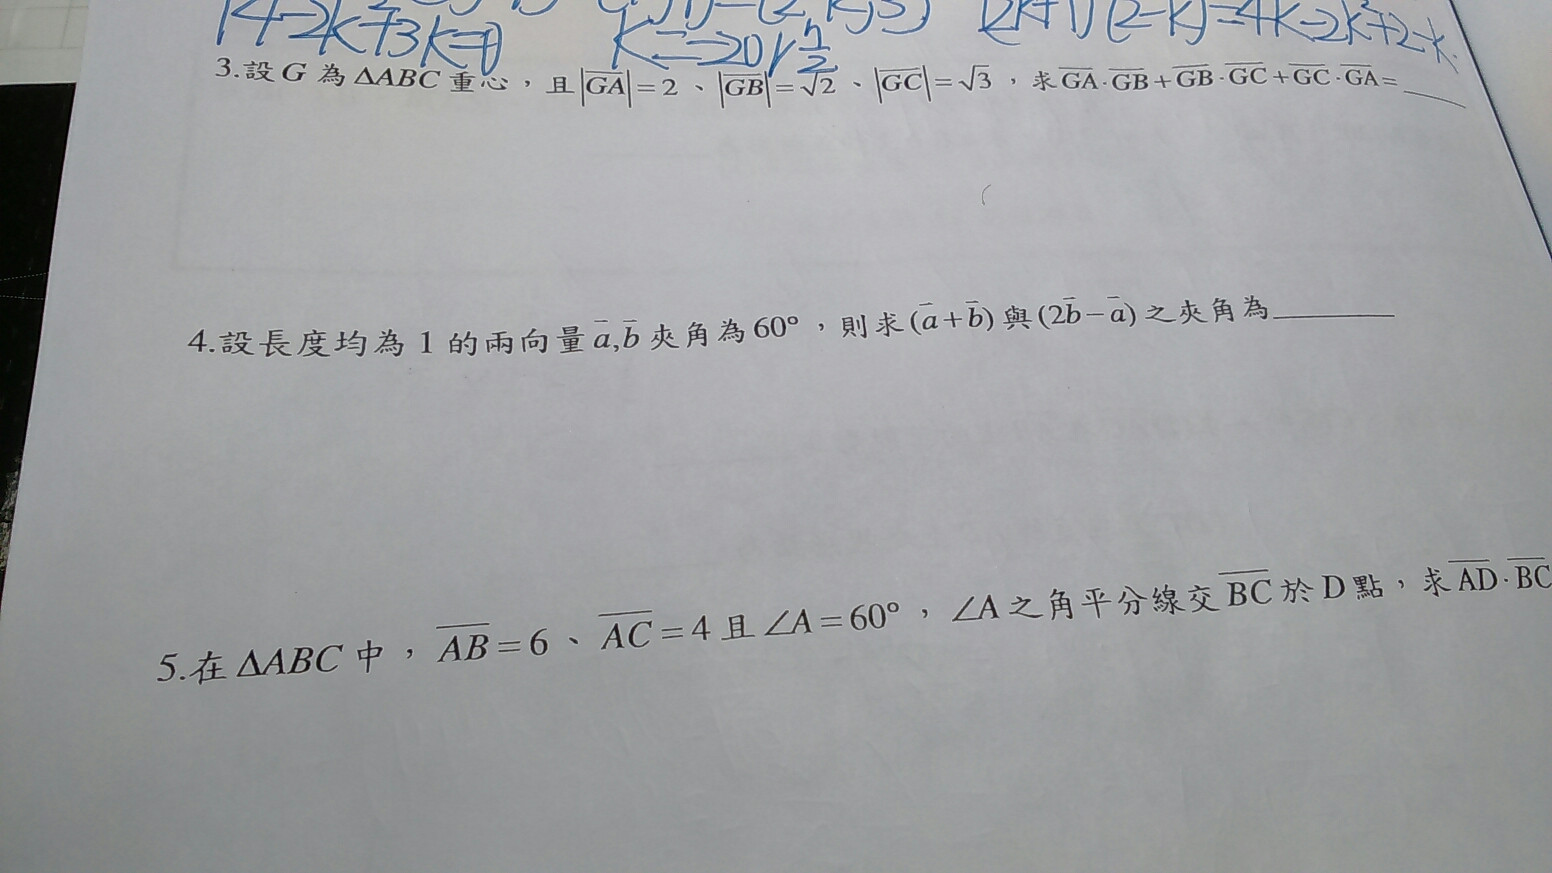 K=-2or 7/2
(2k+1)(2-k)=4k-2k²+2-k
3.設G為ΔABC重心,且|GA|=2、|GB|=√2、|GC|=√3,求GA·GB+GB·GC+GC·GA=____
4.設長度均為1的兩向量a,b夾角為60°,則求(a+b)與(2b-a)之夾角為________
5.在ΔABC中,AB=6、AC=4且∠A=60°,∠A之角平分線交BC於D點,求AD·BC